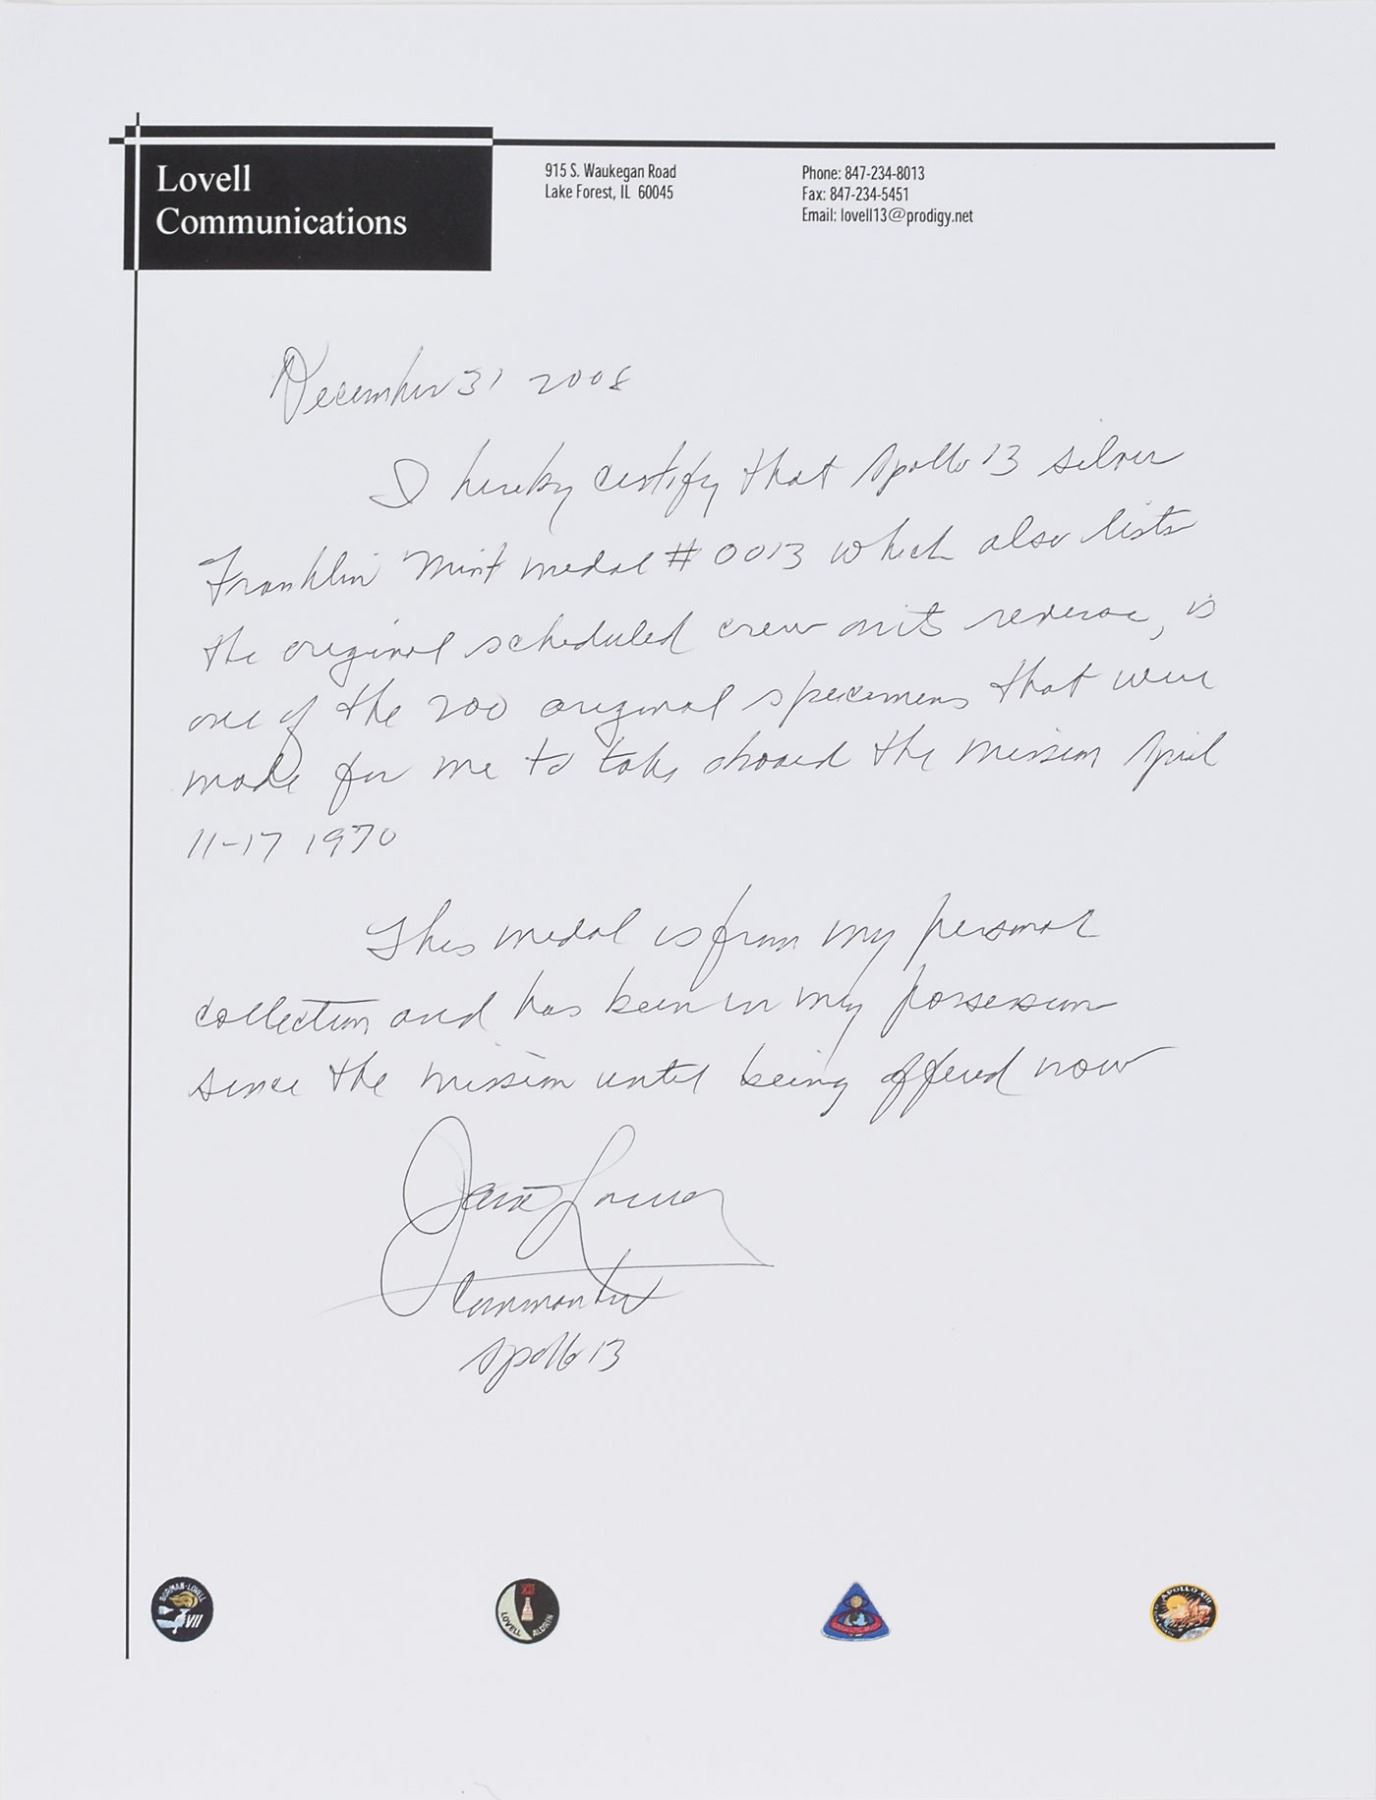 Lovell
Communications
915 S. Waukegan Road
Lake Forest, IL 60045
Phone: 847-234-8013
Fax: 847-234-5451
Email: lovell13@prodigy.net
December 31 2008
I hereby certify that Apollo 13 silver
Franklin Mint medal # 0013 which also lists
the original scheduled crew on its reverse, is
one of the 200 original specimens that were
made for me to take aboard the mission April
11-17 1970
This medal is from my personal
collection and has been in my possession
since the mission until being offered now
James Lovell
Commander
Apollo 13
BORMAN·LOVELL
VII
XII
LOVELL ALDRIN
APOLLO XIII